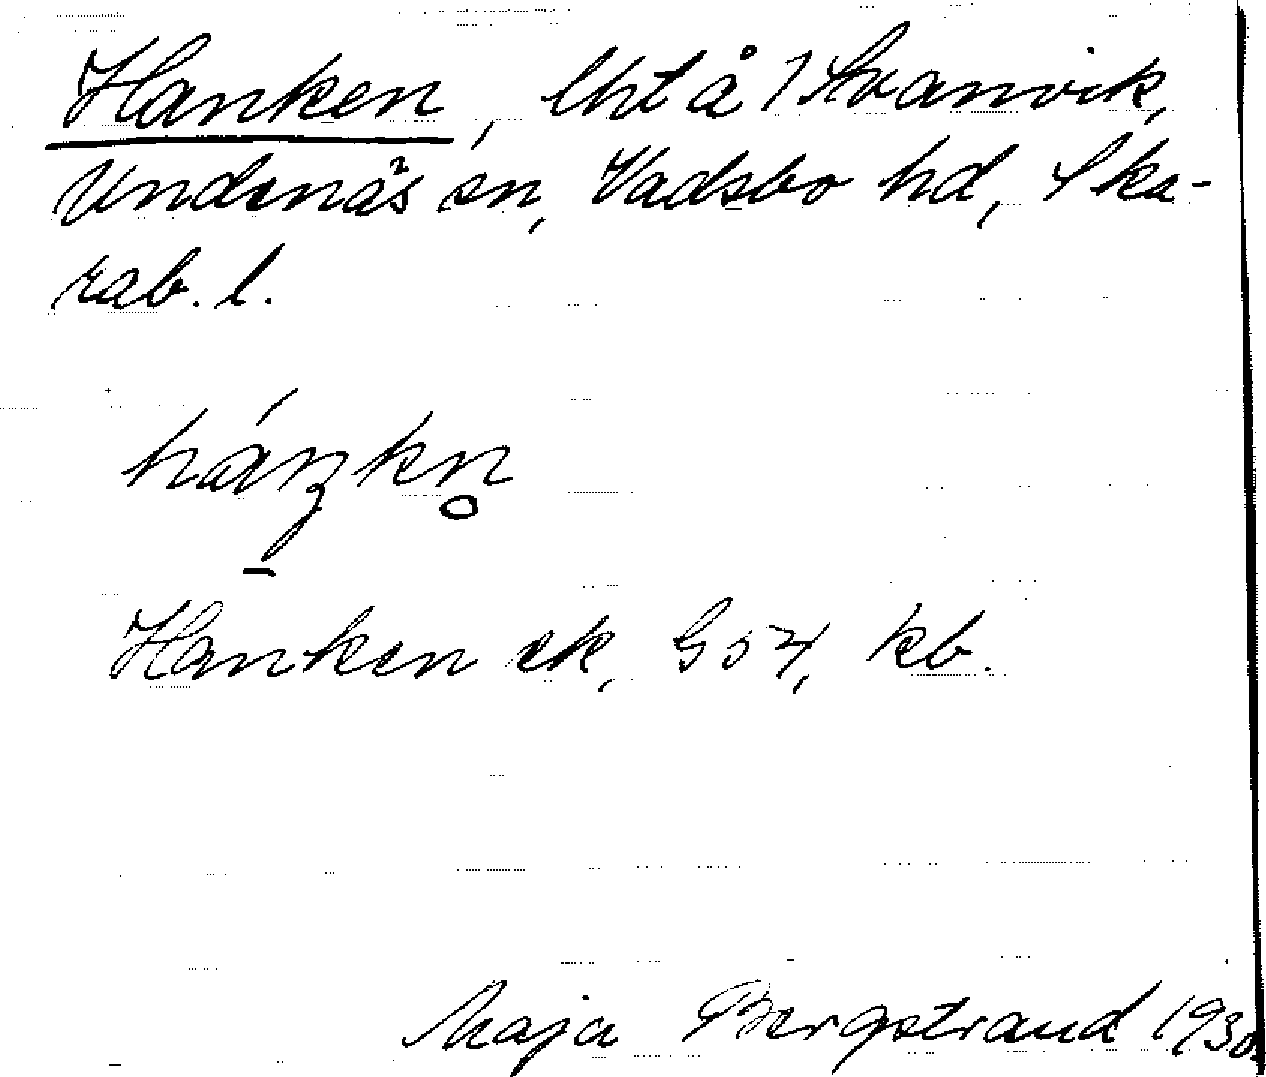 Hanken, lht å 1 Svanvik,
Undenäs sn, Vadsbo hd, Ska-
rab. l.
háŋkn̥
Hanken ek, G54, kb.
Maja Bergstrand 1930.